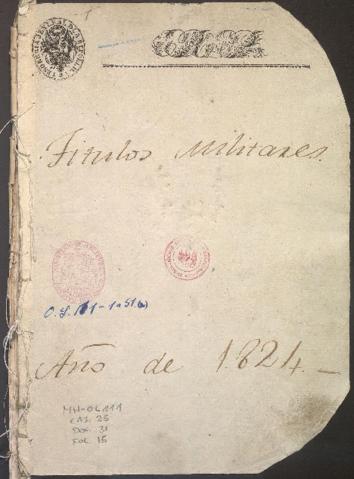 Titulos Militares.
O.L. 111-1a51(a)
Año de 1824.-
MH-OL111
CAJ. 25
DOC. 31
FOL. 15